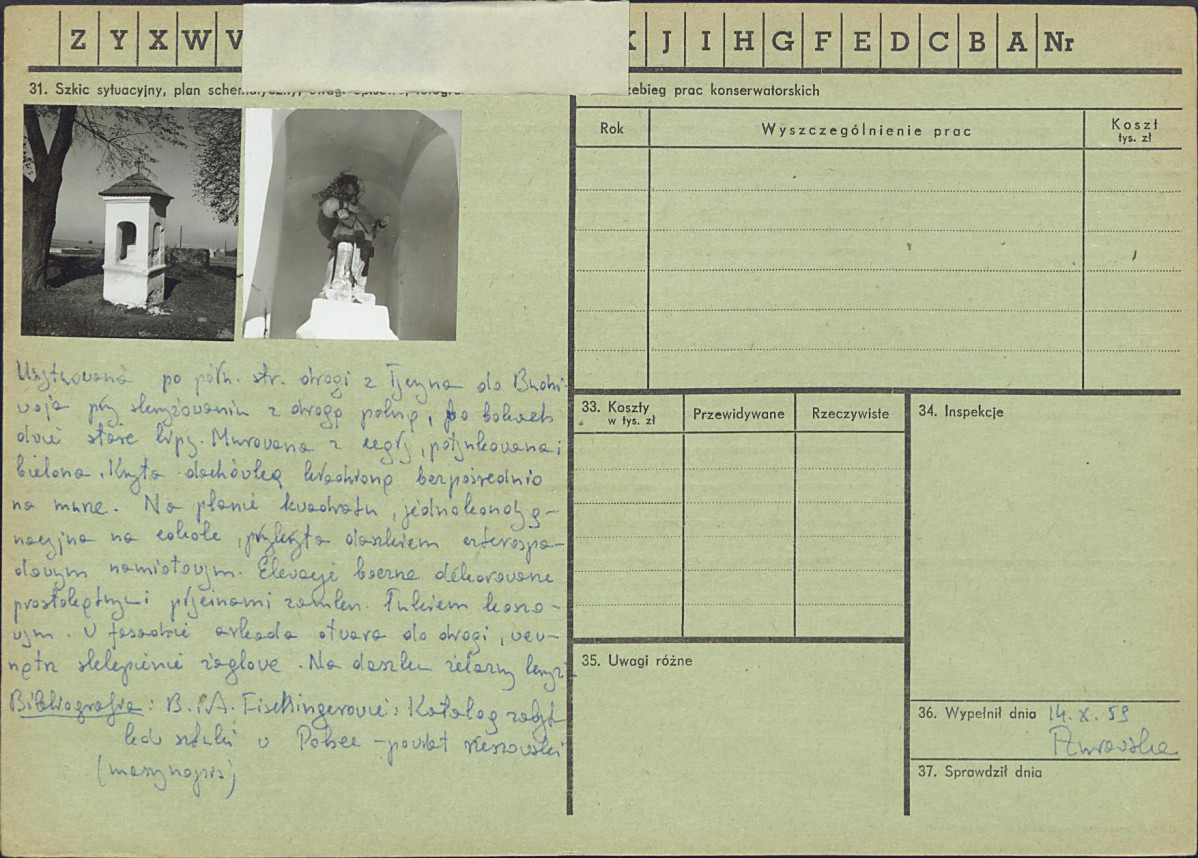 Z Y X W V K J I H G F E D C B A Nr
31. Szkic sytuacyjny, plan schematyczny, uwagi opisowe, fotogra
zebieg prac konserwatorskich
Rok Wyszczególnienie prac Koszt
tys. zł
Usytuowana po półn. str. drogi z Tyczyna do Budzi-
woja przy skrzyżowaniu z drogą polną, po bokach
dwie stare lipy. Murowana z cegły, potynkowana i
bielona. Kryta dachówką bezpośrednio
na murze. Na planie kwadratu, jednokondyg-
nacyjna na cokole, przykryta daszkiem czterospa-
dowym namiotowym. Elewacje boczne dekorowane
prostokątnymi zamkn. łukiem koszo-
wym. W fasadzie arkada otwarta do drogi, wew-
nątrz sklepienie żaglowe. Na daszku żelazny krzyż
Bibliografia: B. i A. Fischingerowie: Katalog zabyt
ków sztuki w Polsce – powiat rzeszowski
(maszynopis)
33. Koszty
w tys. zł
Przewidywane
Rzeczywiste
34. Inspekcje
35. Uwagi różne
36. Wypełnił dnia 14.X.59
37. Sprawdził dnia